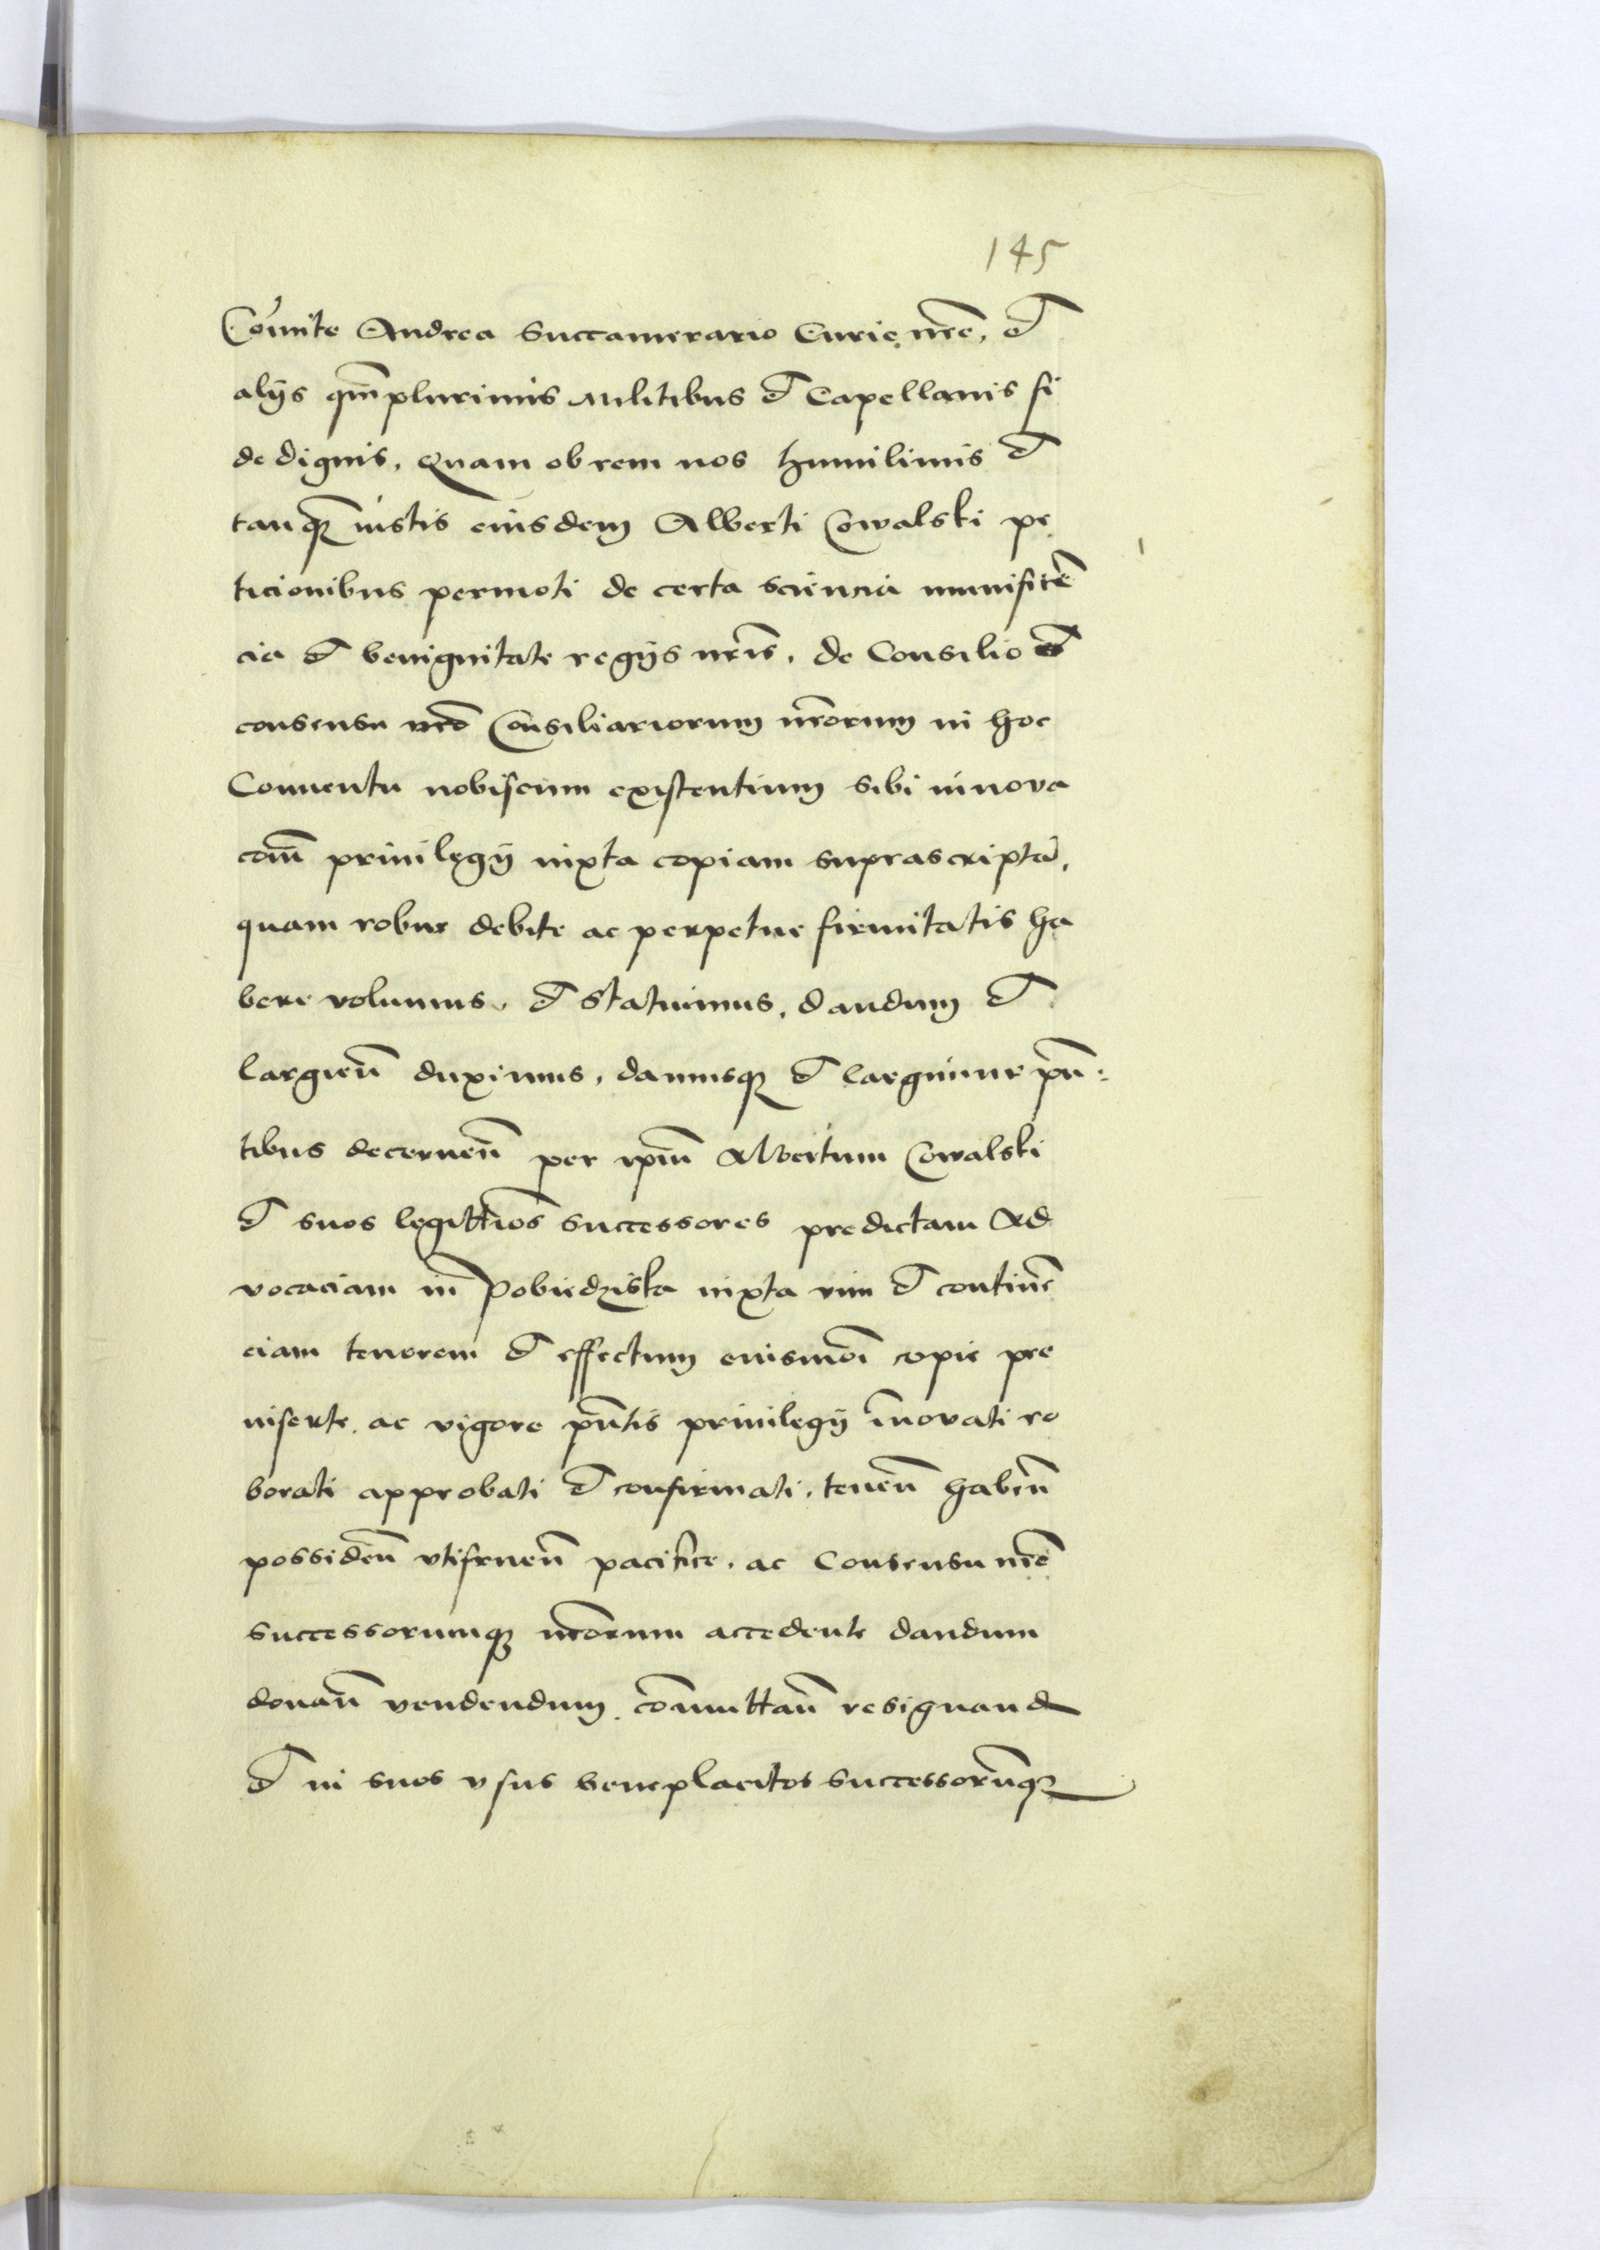 145
Com̄ite Andrea Succamerario Curie nr̄e, et
alijs qm̄plurimis militibus et Capellanis fi
de dignis, Quam ob rem nos humilimis et
tanqȝ iustis eiusdem Alberti Cowalski pe
ticionibus permoti de certa sciencia munificē
cia et benignitate regijs nr̄is, de Consilio et
consensu nr̄o Consiliariorum nr̄orum in hoc
Conuentu nobiscum existentium sibi innova
com̄ priuilegij iuxta copiam suprascriptā,
quam robur debite ac perpetue firmitatis ha
bere volumus, et statuimus, dandum et
largien̄ duximus, damusqȝ et largimur pn̄
tibus decernen̄ per ipm̄ Albertum Cowalski
et suos legittīos successores predictam Ad
vocaciam in Pobiedziska iuxta vim et continē
ciam tenorem et effectum euismōi copie pre
inserte, ac vigore pn̄tis priuilegij īnovati ro
borati approbati et confirmati, tenen̄ haben̄
possiden̄ vtifruen̄ pacifice, ac Consensu nr̄o
successorumqȝ nr̄orum accedente dandum
donan̄ vendendum, com̄uttan̄ resignand
et in suos vsus beneplacitos successorūqȝ